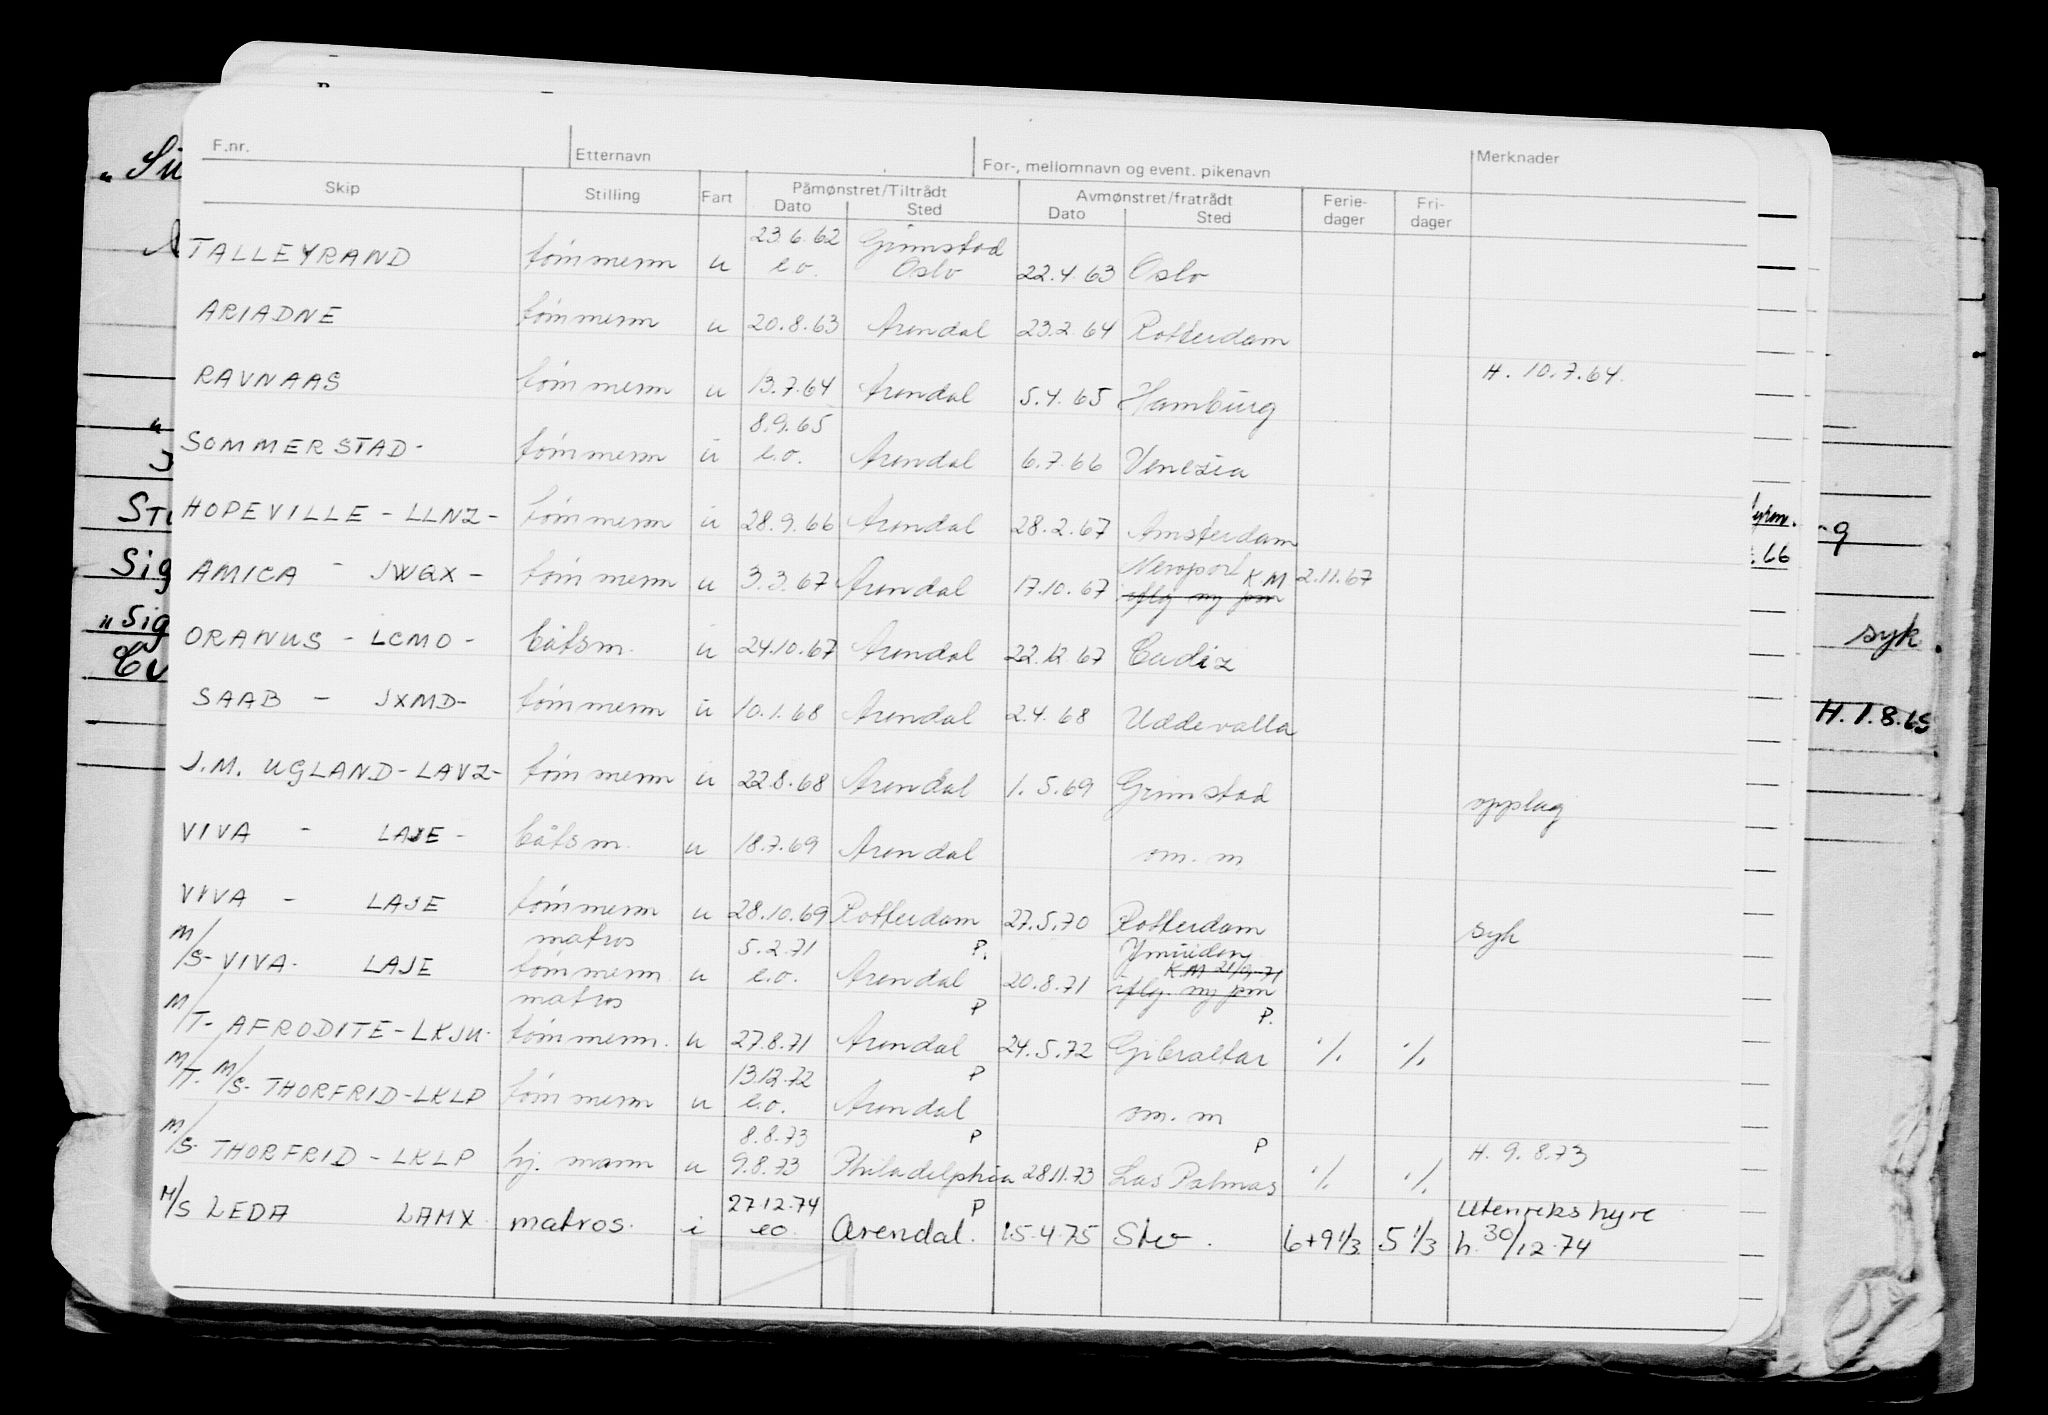 F.nr. Etternavn For-, mellomnavn og event. pikenavn Merknader
Skip Stilling Fart Påmønstret/Tiltrådt Avmønstret/fratrådt Ferie- Fri-
Dato Sted Dato Sted dager dager
23.6.62 Grimstad
TALLEYRAND tømmerm u e.o. Oslo 22.4.63 Oslo
ARIADNE tømmerm u 20.8.63 Arendal 23.2.64 Rotterdam
H. 10.7.64.
RAVNAAS tømmerm u 13.7.64 Arendal 5.4.65 Hamburg
8.9.65
SOMMERSTAD- tømmerm u e.o. Arendal 6.7.66 Venezia
HOPEVILLE - LLNZ- tømmerm u 28.9.66 Arendal 28.2.67 Amsterdam
K.M 2.11.67
AMICA - JWQX - tømmerm u 3.3.67 Arendal 17.10.67 iflg ny pm
ORANUS - LCMO - båtsm. u 24.10.67 Arendal 22.12.67 Cadiz
SAAB - JXMD- tømmerm u 10.1.68 Arendal 2.4.68 Uddevalla
J.M. UGLAND-LAVZ- tømmerm u 22.8.68 Arendal 1.5.69 Grimstad opplag
VIVA - LAJE - båtsm. u 18.7.69 Arendal om. m
VIVA - LAJE tømmerm u 28.10.69 Rotterdam 27.5.70 Rotterdam syk
matros 5.2.71 P. Ymuiden
K.M 21/9-71
M/S- VIVA- LAJE tømmerm u e.o. Arendal 20.8.71 iflg. ny pm
matros P P.
M/T- AFRODITE-LKJU- tømmerm. u 27.8.71 Arendal 24.5.72 Gibraltar ./. ./.
13.12.72 P
M/T. M/S- THORFRID-LKLP tømmerm u e.o. Arendal om. m
8.8.73 P P H. 9.8.73
M/S- THORFRID - LKLP hj. mann u 9.8.73 Philadelphia 28.11.73 Las Palmas ./. ./.
27.12.74 P Utenriks hyre
M/S LEDA LAMX matros. i eo Arendal. 15-4-75 Stv. 6+9 1/3 5 1/3 h. 30/12-74
Sig
"Sig
.66
syk.
H. 1.8.65